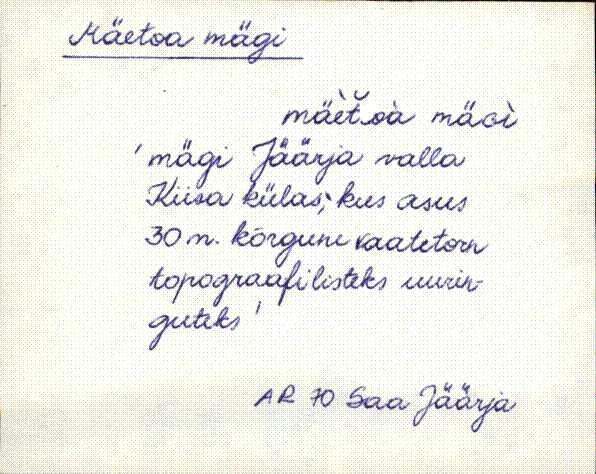 Mäetoa mägi
mäèťoà mäGì
'mägi Jäärja valla
Kiisa külas, kus asus
30 m. kõrgune vaatetorn
topograafilisteks uurin-
guteks'
AR 70 Saa Jäärja